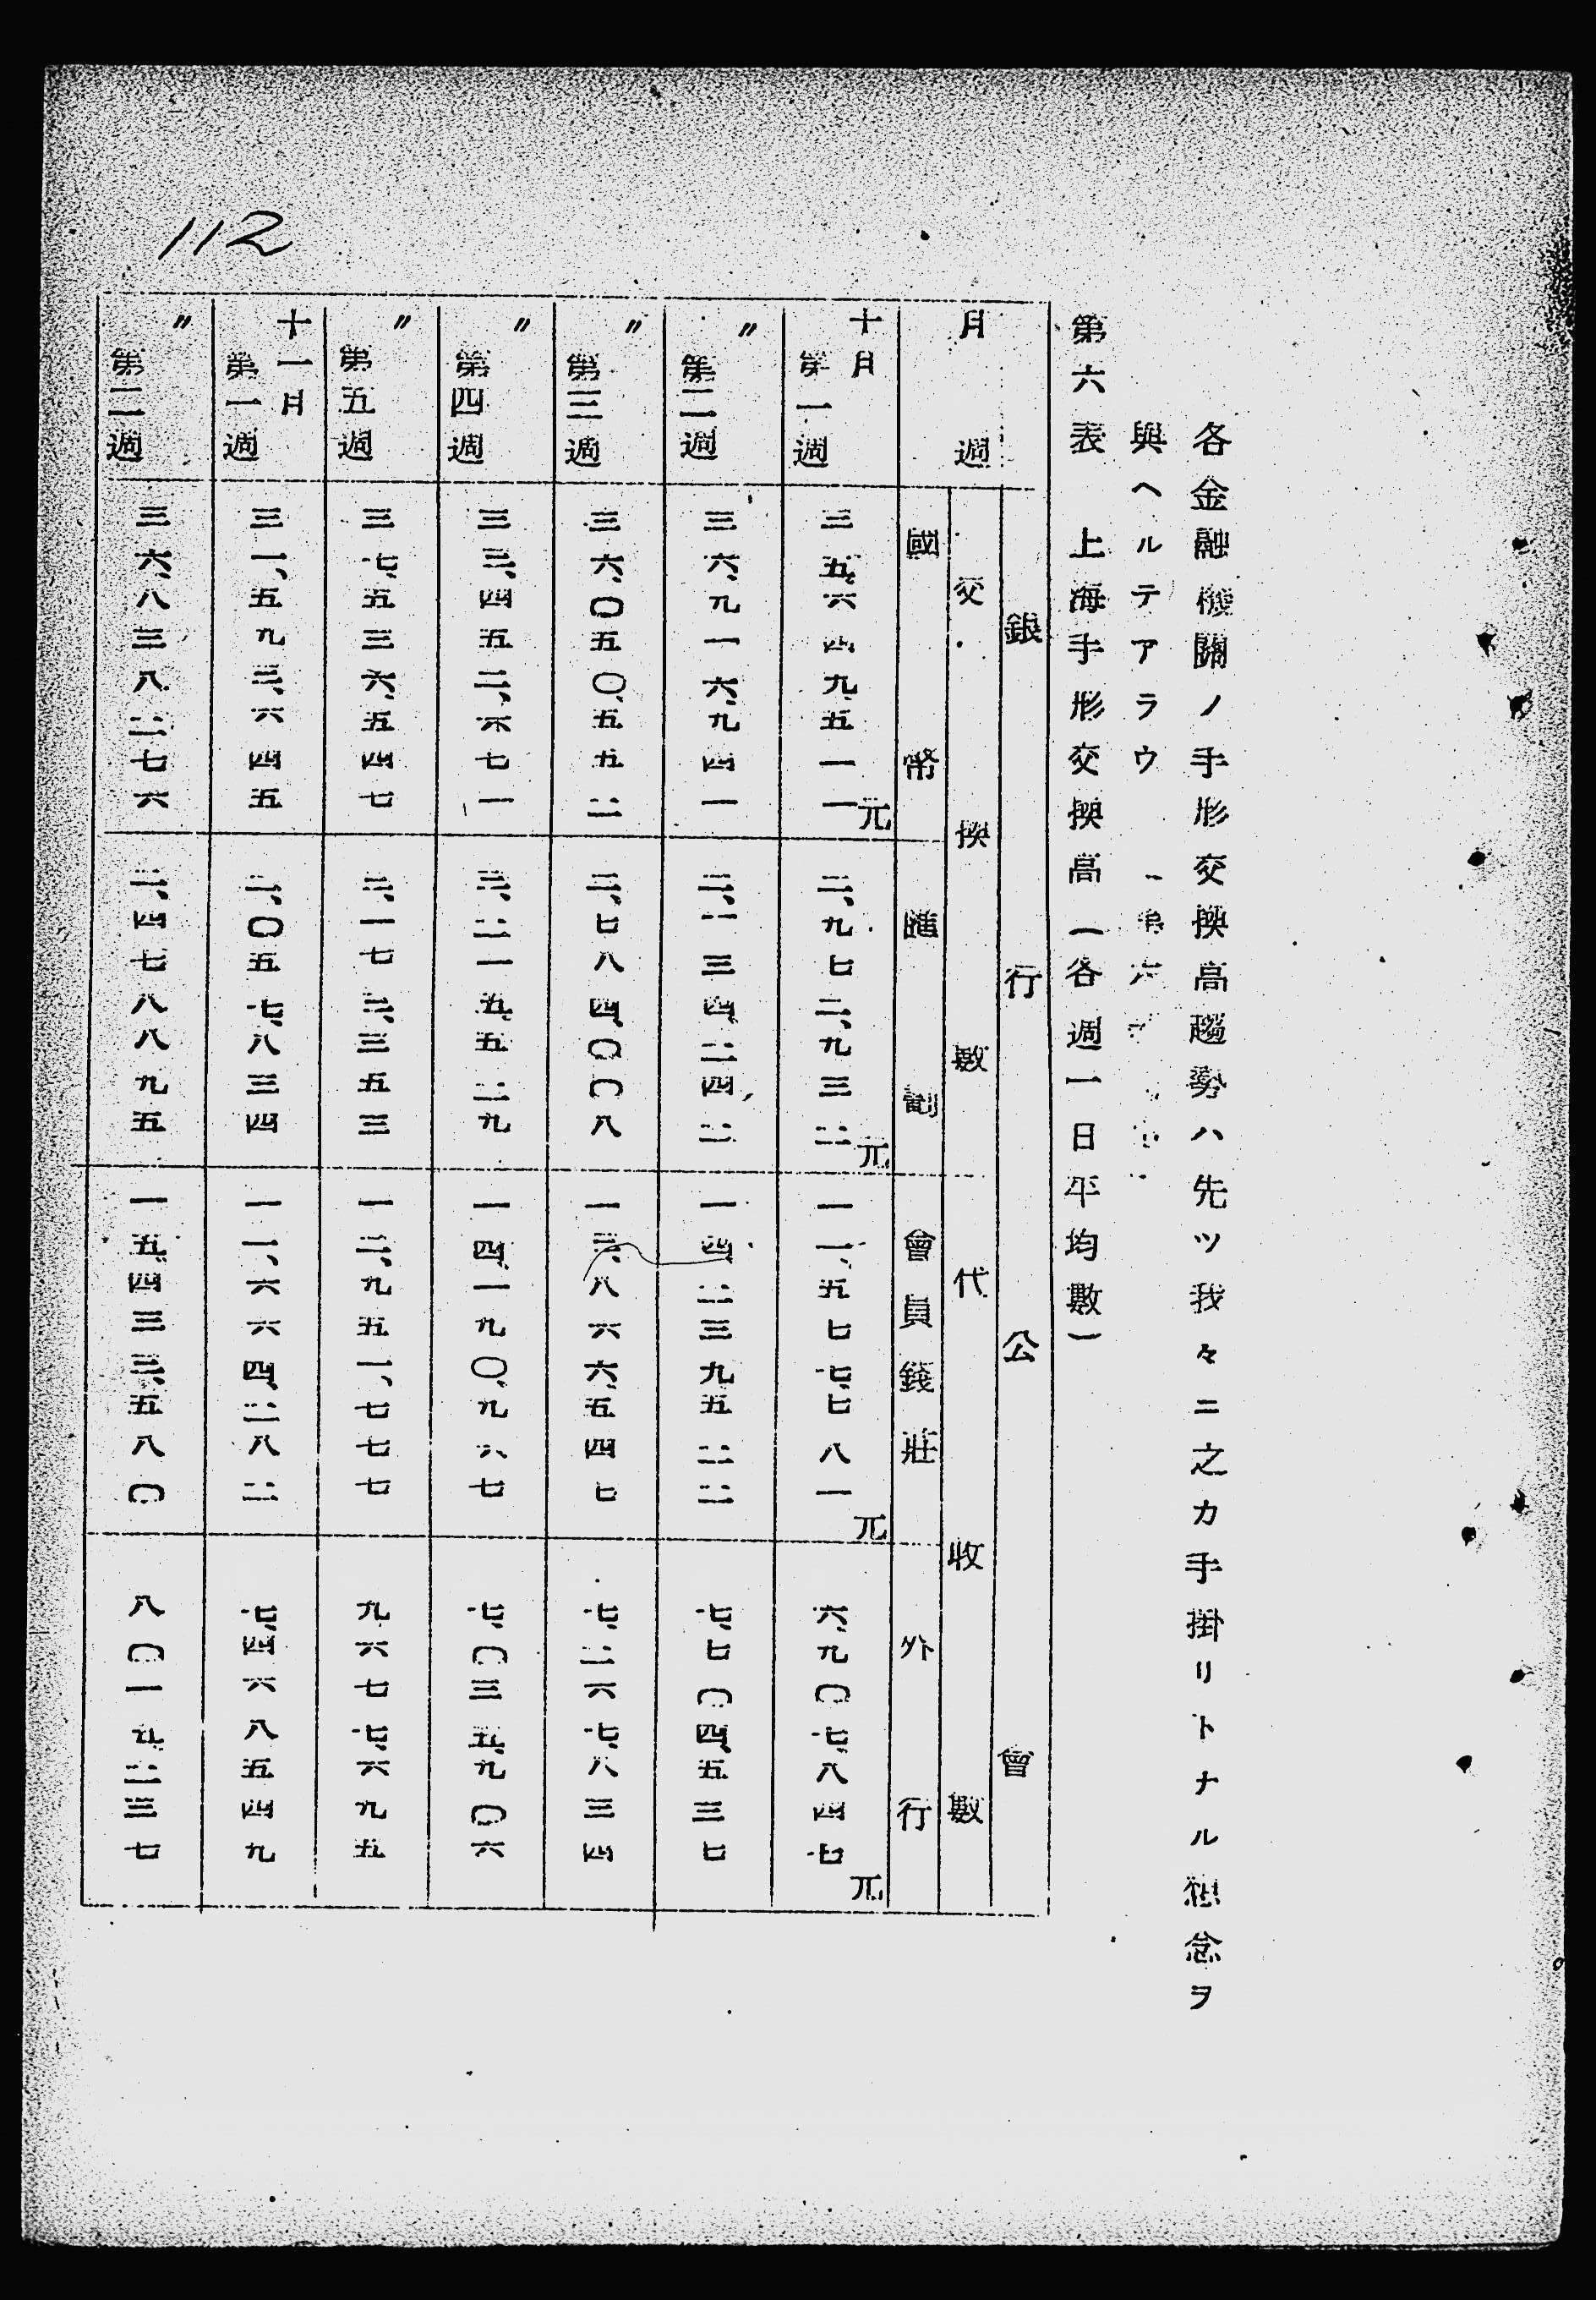 112
各金融機關ノ手形交換高趨勢ハ先ツ我々ニ之カ手掛リトナル想念ヲ
與ヘルテアラウ
第六表 上海手形交換高(各週一日平均數)
月 週
銀行公會
交換數 代收數
國幣 匯劃 會員錢莊 外行
十月 第一週 三五、六四九、五一一元 二、九七二、九三二元 一一、五七七、七八一元 六、九〇七、八四七元
〃 第二週 三六、九一六、九四一 二、一三四、二四二 一四、二三九、五二二 七、七〇四、五三七
〃 第三週 三六、〇五〇、五五二 二、七八四、〇〇八 一三、八六六、五四七 七、二六七、八三四
〃 第四週 三三、四五二、六七一 三、二一五、五二九 一四、一九〇、九六七 七、〇三五、九〇六
〃 第五週 三七、五三六、五四七 三、一七三、三五三 一二、九五一、七七七 九六七七、六九五
十一月 第一週 三一、五九三、六四五 二、〇五七、八三四 一一、六六四、二八二 七、四六八五四九
〃 第二週 三六、八三八、二七六 二、四七八八九五 一五、四三三、五八〇 八〇一九二三七